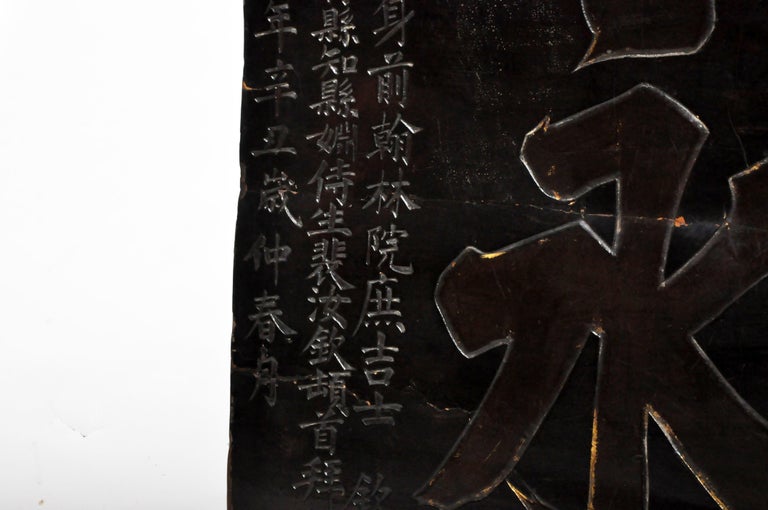 永
身前翰林院庶吉士 欽
縣知縣婣侍生裴汝欽頓首拜
年辛丑歲仲春月